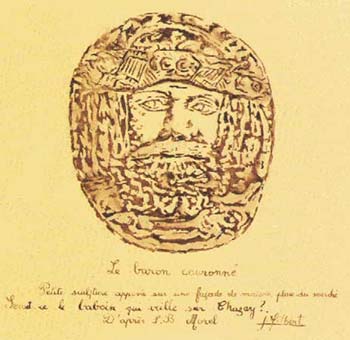 Le baron couronné
Petite sculpture apposée sur une façade de maison place du marché
Serait ce le baboin qui veille sur Chazay?.
D'après L.B Morel
J Gilbert